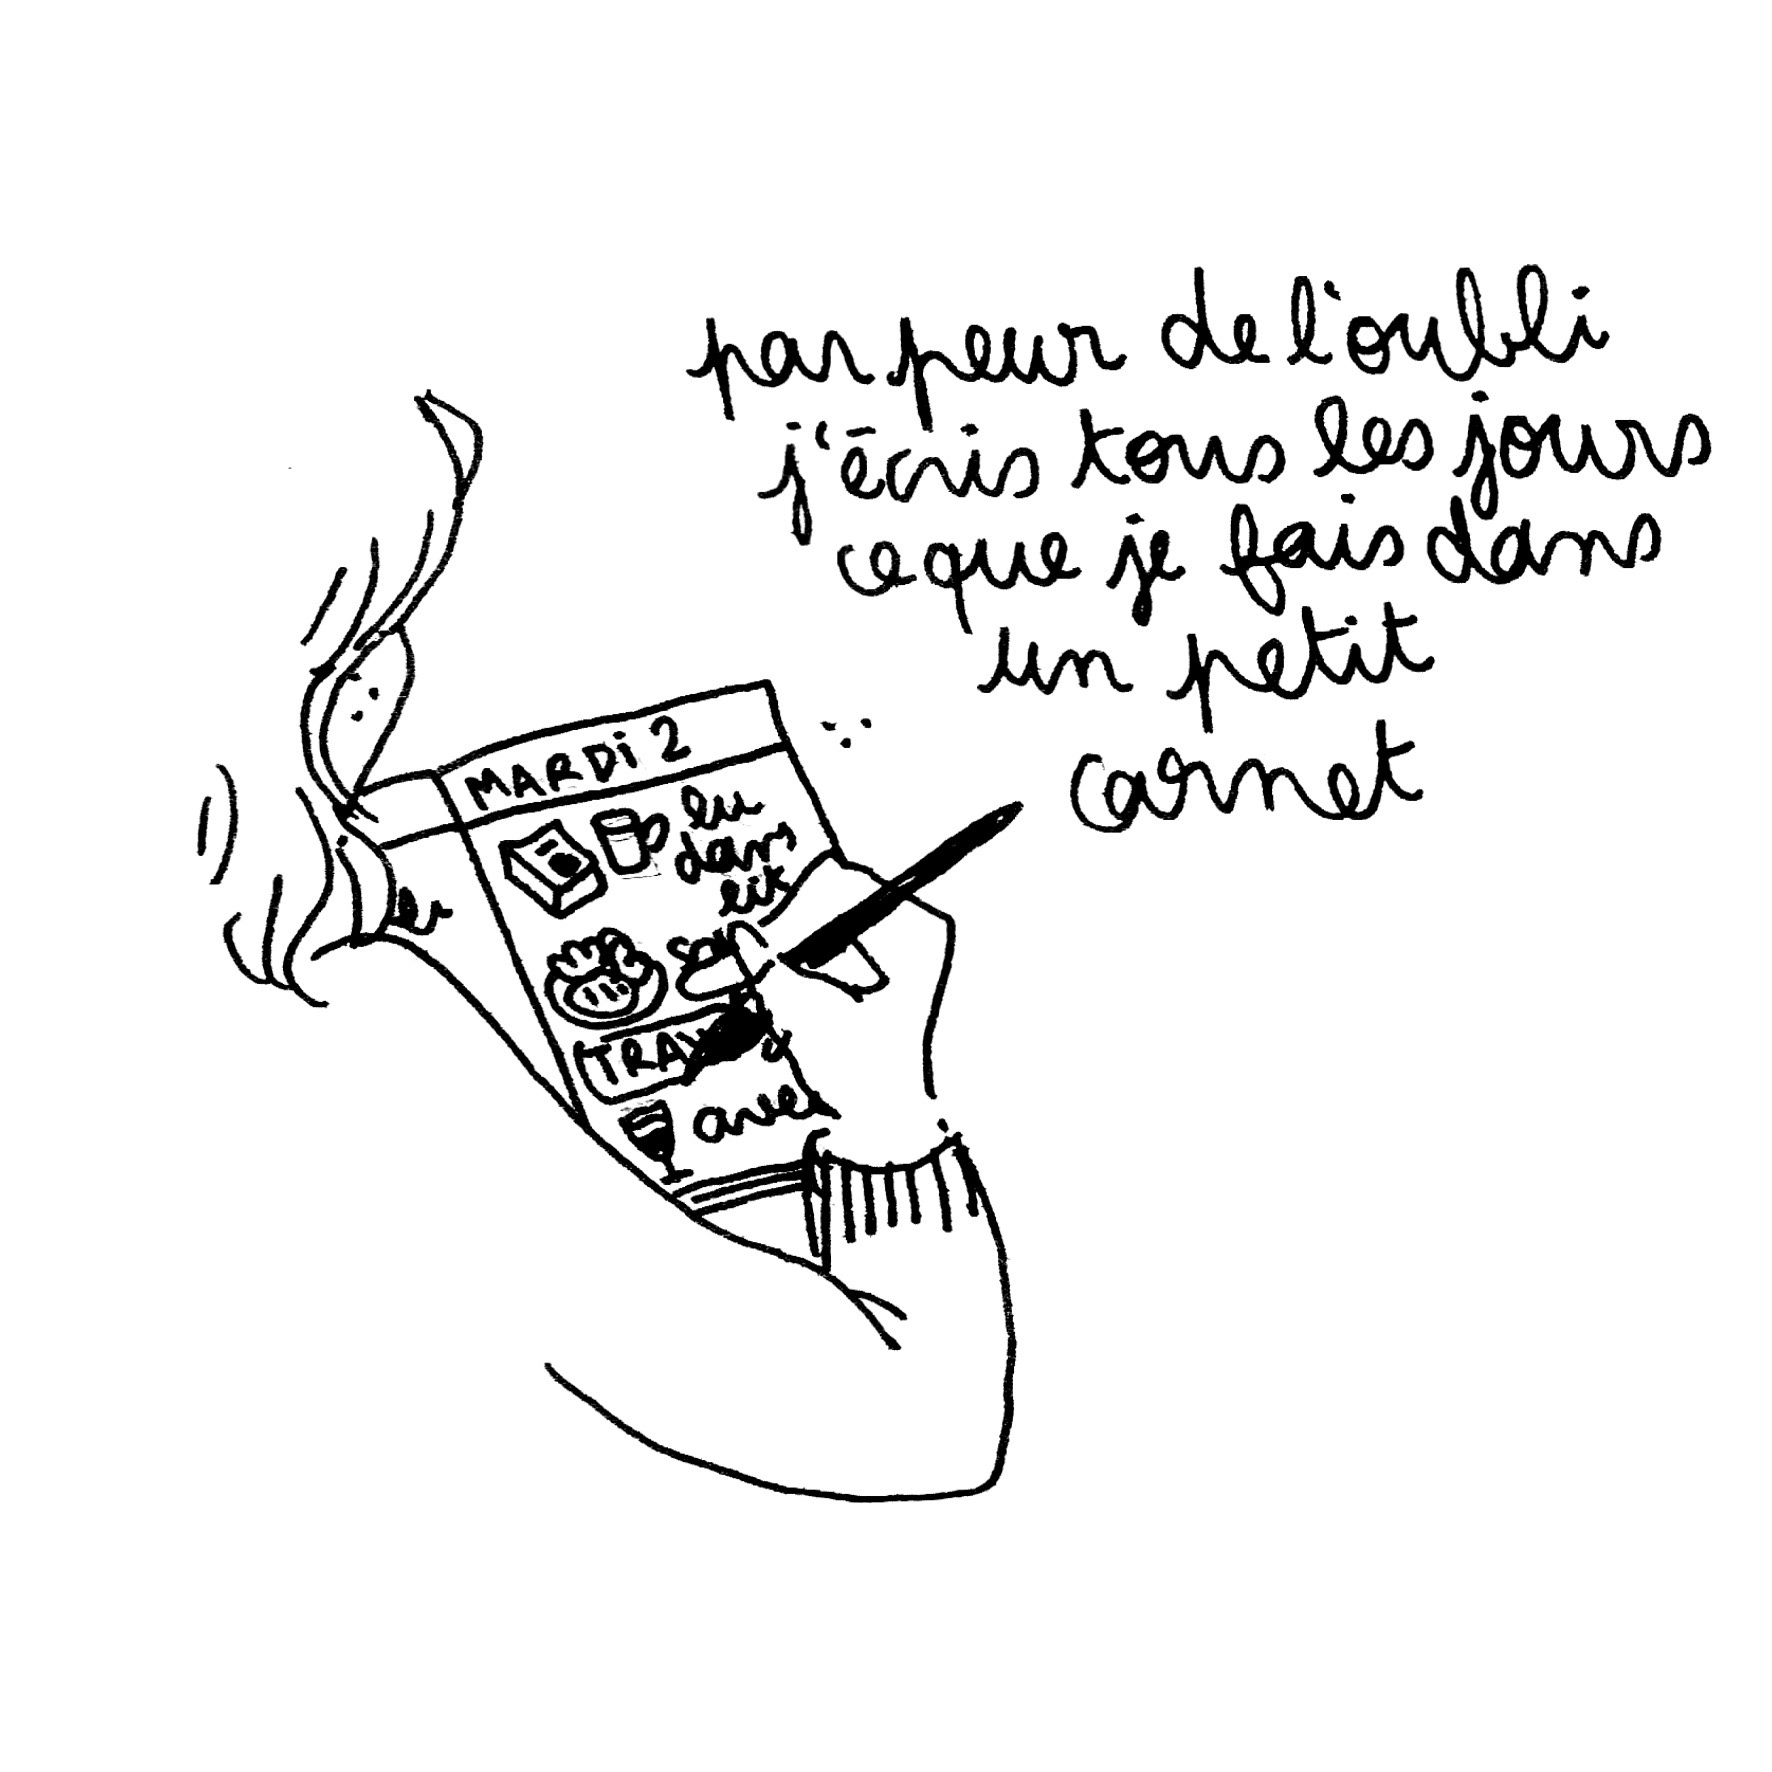 par peur de l'oubli
j'écris tous les jours
ce que je fais dans
un petit
carnet
MARDI 2
lu
dans
lit